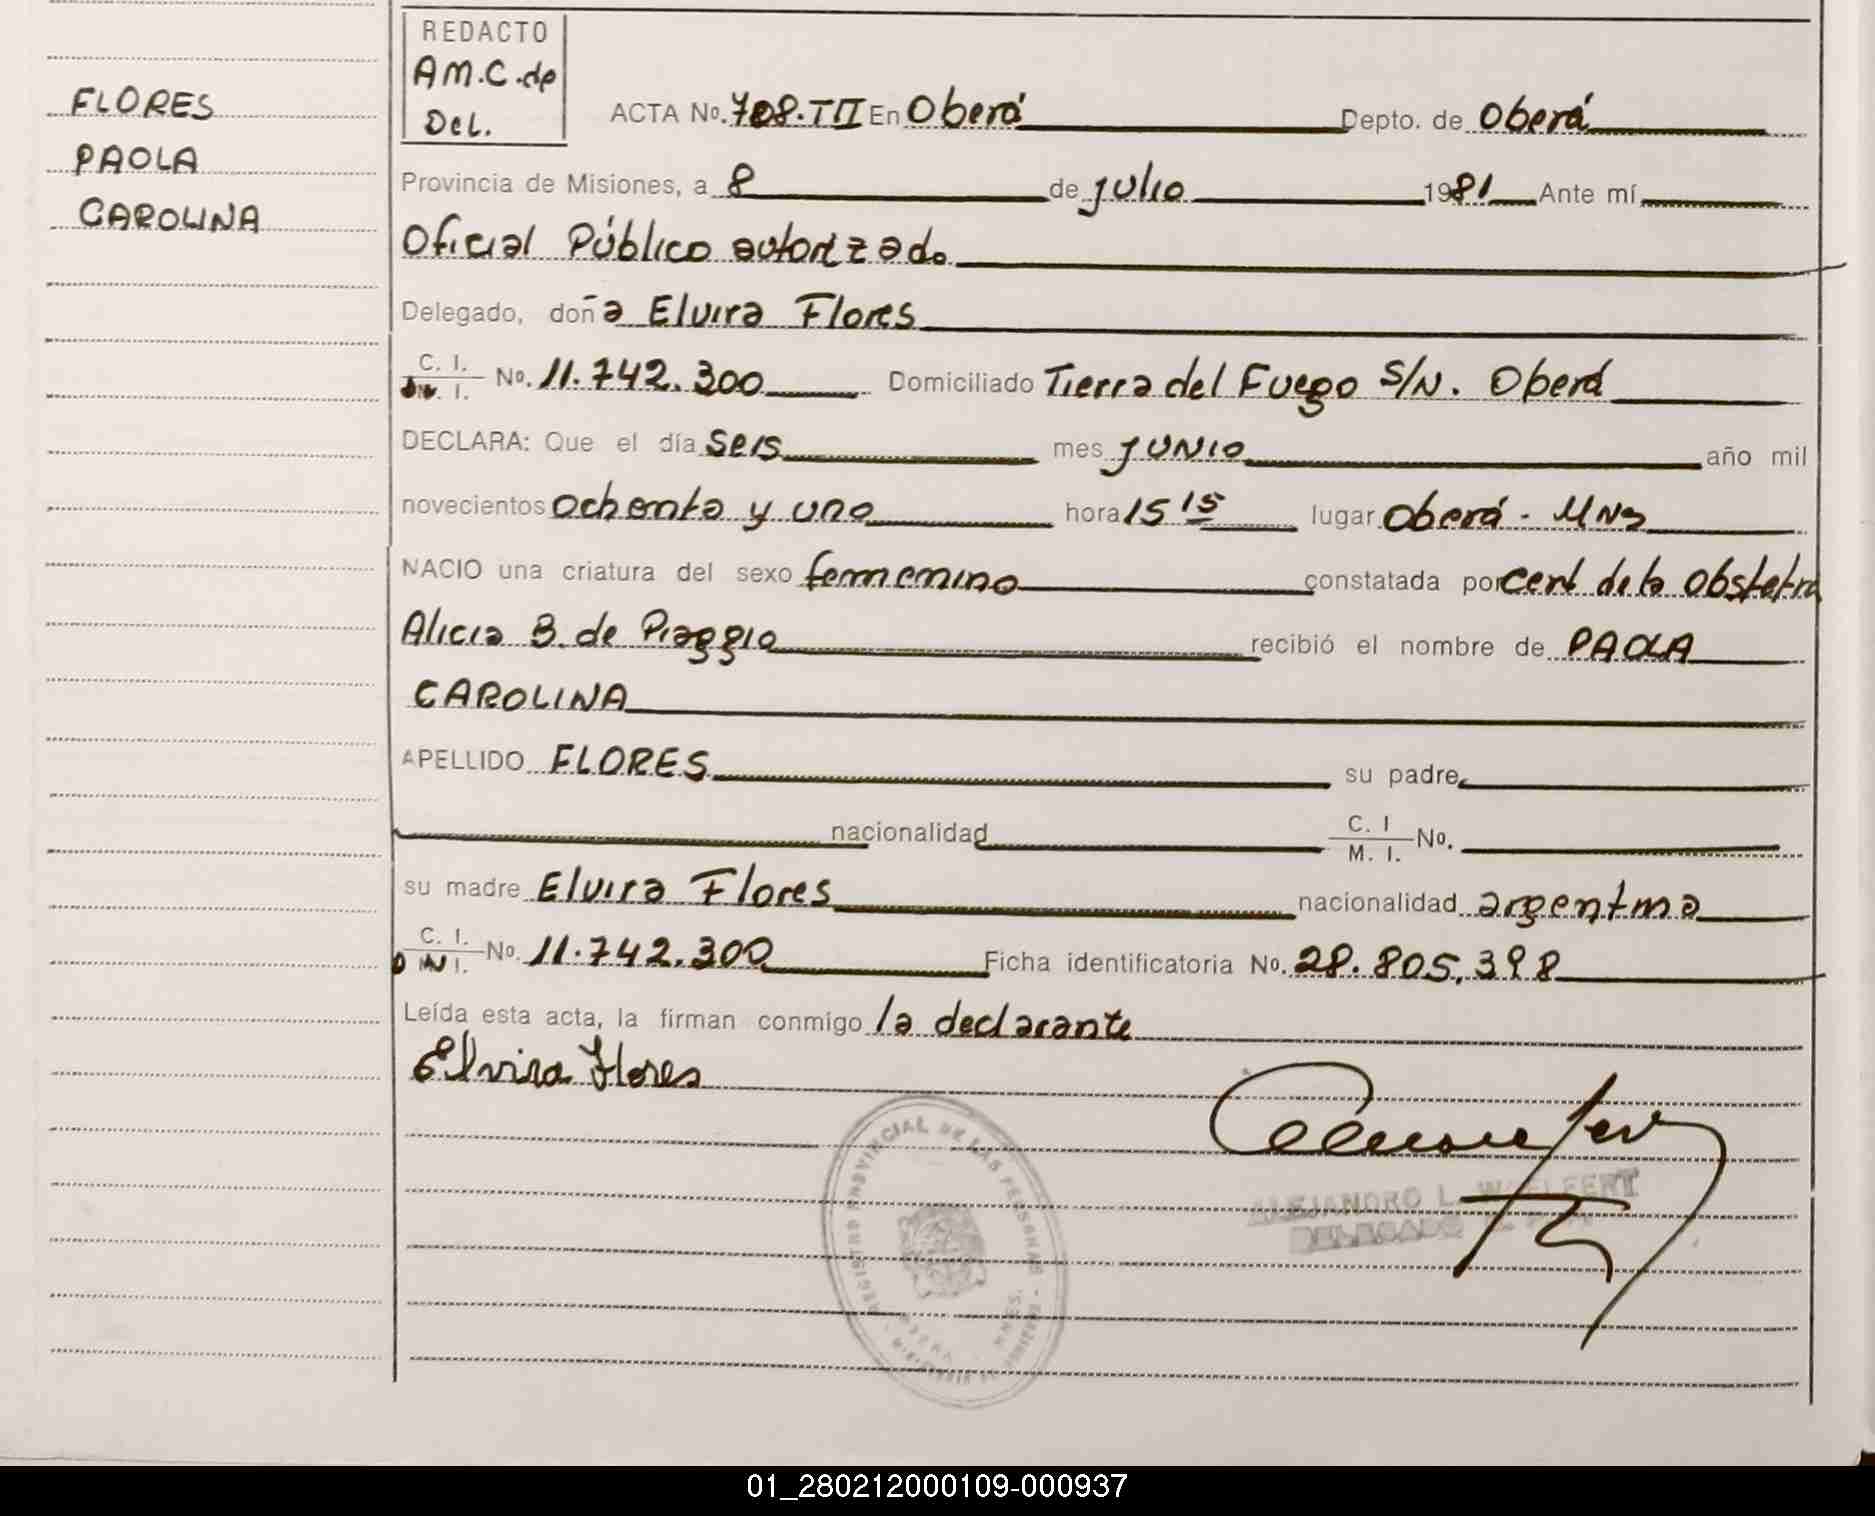 FLORES
PAOLA
CAROLINA
REDACTO
AM.C.de
Del.
ACTA No. 708.TIII En Oberá Depto. de Oberá
Provincia de Misiones, a 8 de julio 1981 Ante mí,
Oficial Público autorizado
Delegado, doña Elvira Flores
C. I. No. 11.742.300 Domiciliado Tierra del Fuego S/N. Oberá
I.
DECLARA: Que el día seis mes junio año mil
novecientos ochenta y uno hora 15 15 lugar Oberá - Mnes
NACIO una criatura del sexo femenino constatada por cert de la Obstetra
Alicia B. de Piaggio recibió el nombre de PAOLA
CAROLINA
APELLIDO FLORES su padre
nacionalidad C. I No.
M. I.
su madre Elvira Flores nacionalidad argentina
C. I. No. 11.742.300 Ficha identificatoria No. 28.805.398
I.
Leída esta acta, la firman conmigo la declarante
Elvira Flores
REGISTRO PROVINCIAL DE LAS PERSONAS
ALEJANDRO L. WOELFERT
DELEGADO
01_280212000109-000937